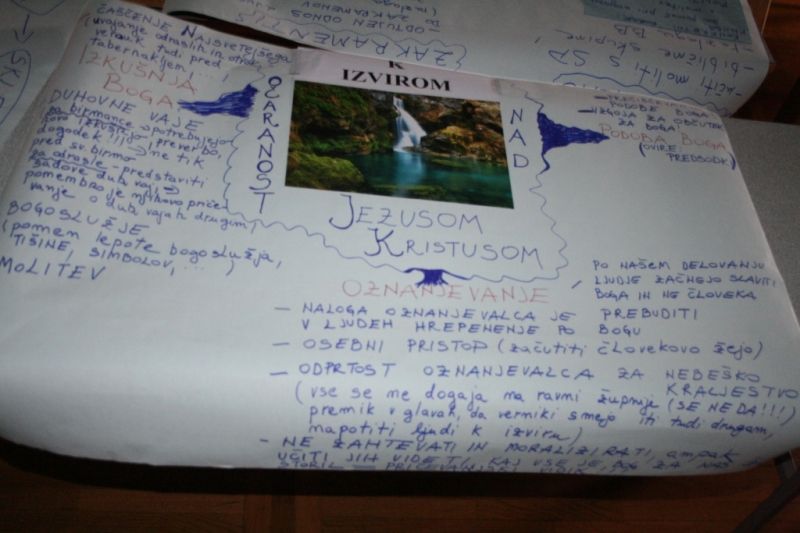 ČAŠČENJE NAJSVETEJŠEGA
(uvajanje odraslih in otrok,
tudi pred
tabernakljem, ...
IZKUŠNJA
BOGA
DUHOVNE VAJE
za birmance → potrebujejo
dogodek!!!) → ne tik
pred sv. birmo
za odrasle → predstaviti
sadove duh. vaj →
pomembno je njihovo priče-
vanje o duh. vajah drugim,
BOGOSLUŽJE
(pomen lepote bogoslužja,
TIŠINE, SIMBOLOV, ...)
MOLITEV
K
IZVIROM
OČARANOST
NAD
JEZUSOM
KRISTUSOM
PODOBE BOGA
VZGOJA ZA OBČUTEK
ZA BOGA
PODOBA BOGA
(OVIRE,
PREDSODKI)
ZAKRAMENTI
ODTUJEN ODNOS
DO ZAKRAMENTOV
UČITI MOLITI S SP
BIBLIČNE SKUPINE
OZNANJEVANJE
PO NAŠEM DELOVANJU
LJUDJE ZAČNEJO SLAVITI
BOGA IN NE ČLOVEKA
- NALOGA OZNANJEVALCA JE PREBUDITI
V LJUDEH HREPENENJE PO BOGU
- OSEBNI PRISTOP (začutiti človekovo žejo)
- ODPRTOST OZNANJEVALCA ZA NEBEŠKO
KRALJESTVO
(vse se ne dogaja na ravni župnije (SE NE DA!!!)
premik v glavah, da verniki smejo iti tudi drugam,
napotiti ljudi k izviru)
- NE ZAHTEVATI IN MORALIZIRATI, ampak
UČITI JIH VIDETI, KAJ VSE JE BOG ZA NAS
STORIL